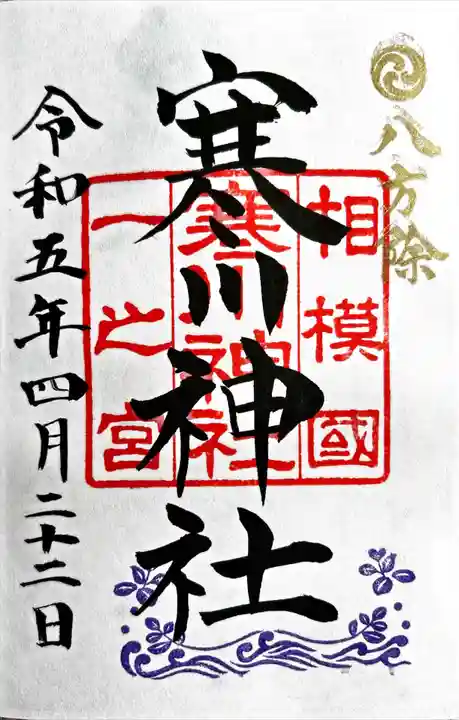 八方除
寒川神社
相模國
寒川神社
一之宮
令和五年四月二十二日